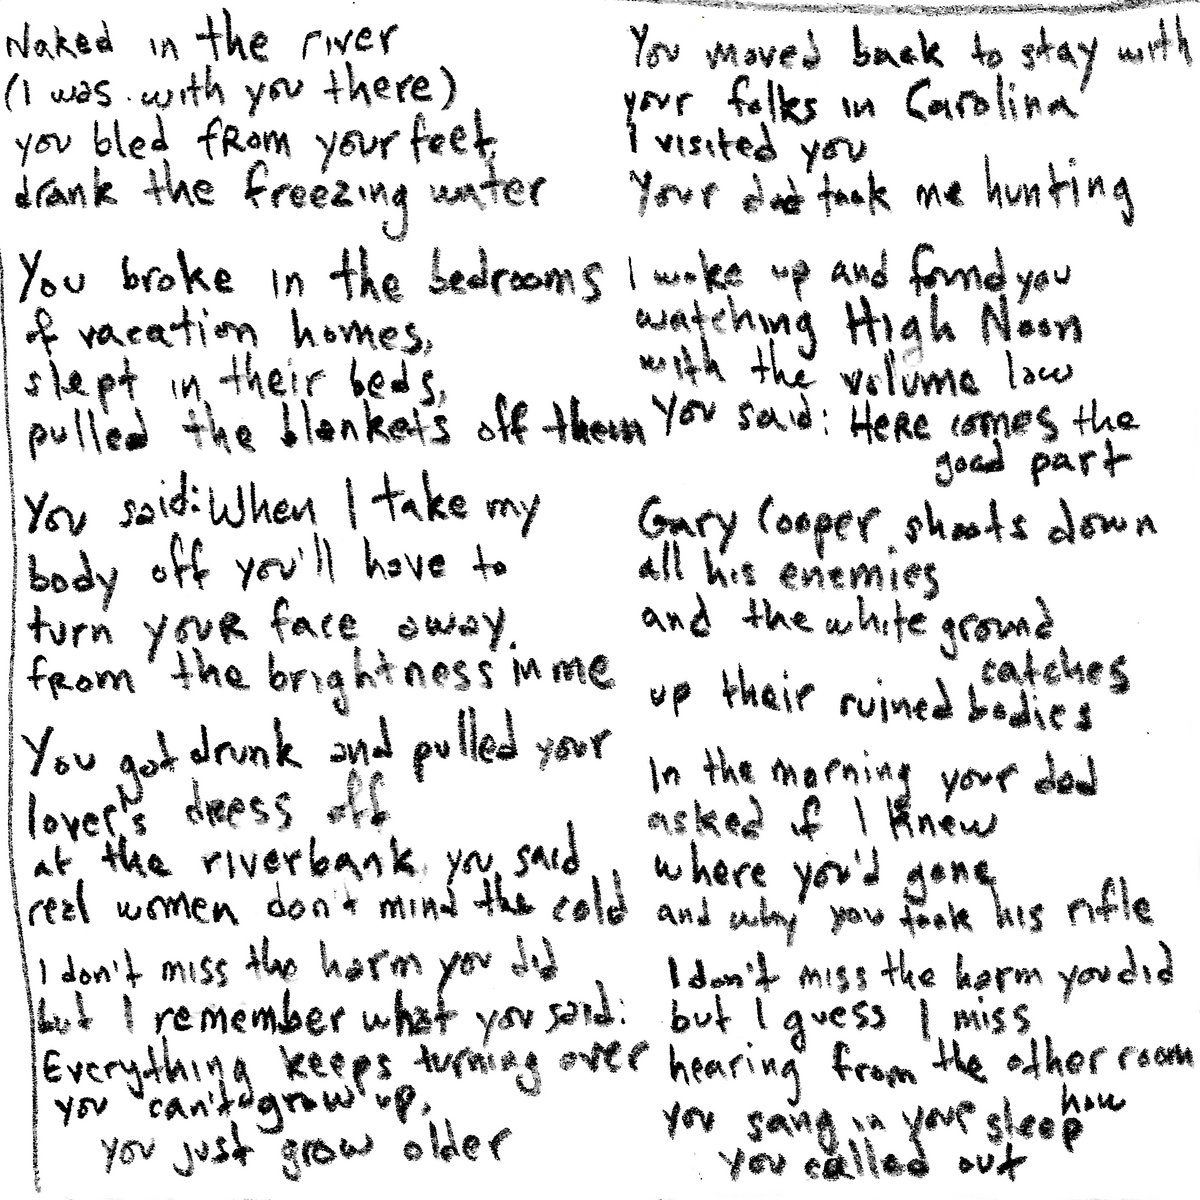 Naked in the river
(I was with you there)
you bled from your feet,
drank the freezing water
You broke in the bedrooms
of vacation homes,
slept in their beds,
pulled the blankets off them
You said: When I take my
body off you'll have to
turn your face away.
from the brightness in me
You got drunk and pulled your
lover's dress off
at the riverbank you said
real women don't mind the cold
I don't miss the harm you did
but I remember what you said:
Everything keeps turning over
you can't grow up,
you just grow older
You moved back to stay with
your folks in Carolina
I visited you
Your dad took me hunting
I woke up and found you
watching High Noon
with the volume low
You said: Here comes the
good part
Gary Cooper shoots down
all his enemies
and the white ground
catches
up their ruined bodies
In the morning your dad
asked if I knew
where you'd gone
and why you took his rifle
I don't miss the harm you did
but I guess I miss
hearing from the other room
how
you sang in your sleep
you called out